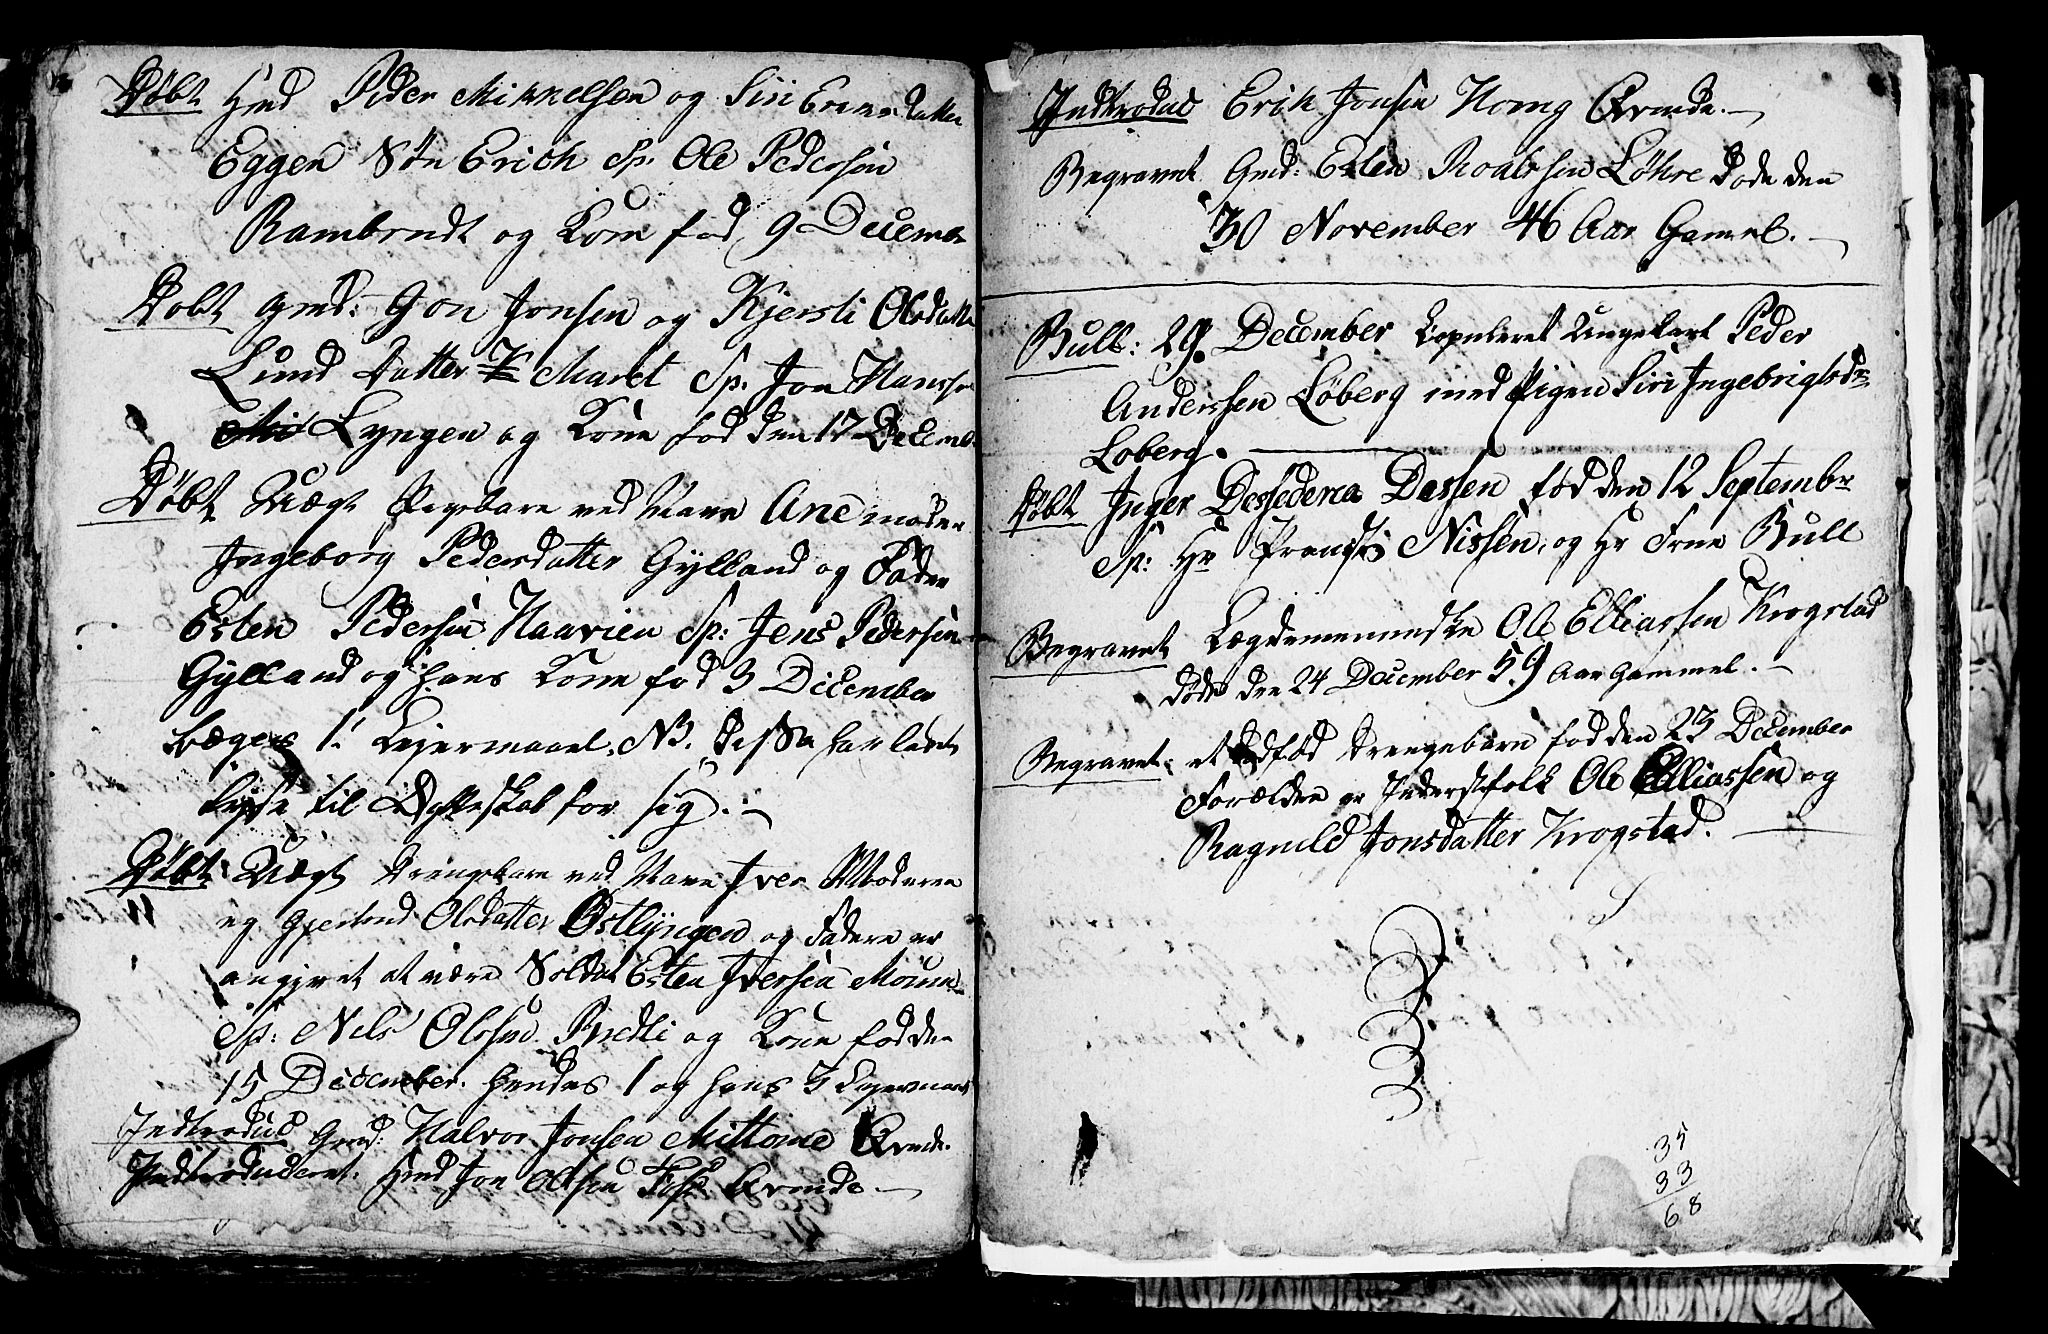 Døbt Hmd Peder Mikkelsen og Siri datter
Eggen Søn Erich Sp. Ole Pedersen
Rambrudt og Kone fød 9 December
Døbt Gmd: Jon Jonsen og Kjersti Olsdatter
Lund Datter Maret Sp. Jon Hansen
Lyngen og Kone fød den 17 Decemb
Døbt Uægt Pigebarn ved Navn Ane moder
Ingeborg Pedersdatter Gylland og Fader
Esten Pedersen Haavien Sp: Jens Pedersen
Gylland og hans Kone fød 3 December
begges 1. Lejermaal. NB. disse har ladet
lyse til Ægteskab for sig.
Døbt Uægt Drengebarn ved Navn Iver Moderen
er Gjertrud Olsdatter Østlyngen og Faderen er
angivet at være Soldat Esten Iversen
Sp: Nels Olsen Bredli og Kone fød den
15 December. hendes 1 og hans 3 Lejermaal
Indtroduc Gmd: Halvor Jonsen Mittome Qvinde.
Indtroduceret: Hmd Jon Olsen Foss Qvinde
Indtroduc Erik Jonsen Hong Qvinde.
Begravet Gmd: Esten Roalssen Løhre døde den
30 November 46 Aar Gammel.
Bull: 29. December Copuleret Ungekarl Peder
Anderssen Løberg med Pigen Siri Ingebrigtsdr
Loberg.
Døbt Inger Dessedena Dassen fød den 12 Septembr
Sp: Hr Nissen, og Hr Frue Bull
Begravet Lægdemenneske Ole Elliassen Krogstad
døde den 24 December 59 Aar Gammel.
Begravet: et dødfød drengebarn fød den 23 December
Forældre er Inderstfolk Ole Elliassen og
Ragnild Jonsdatter Krogstad.
35
33
68